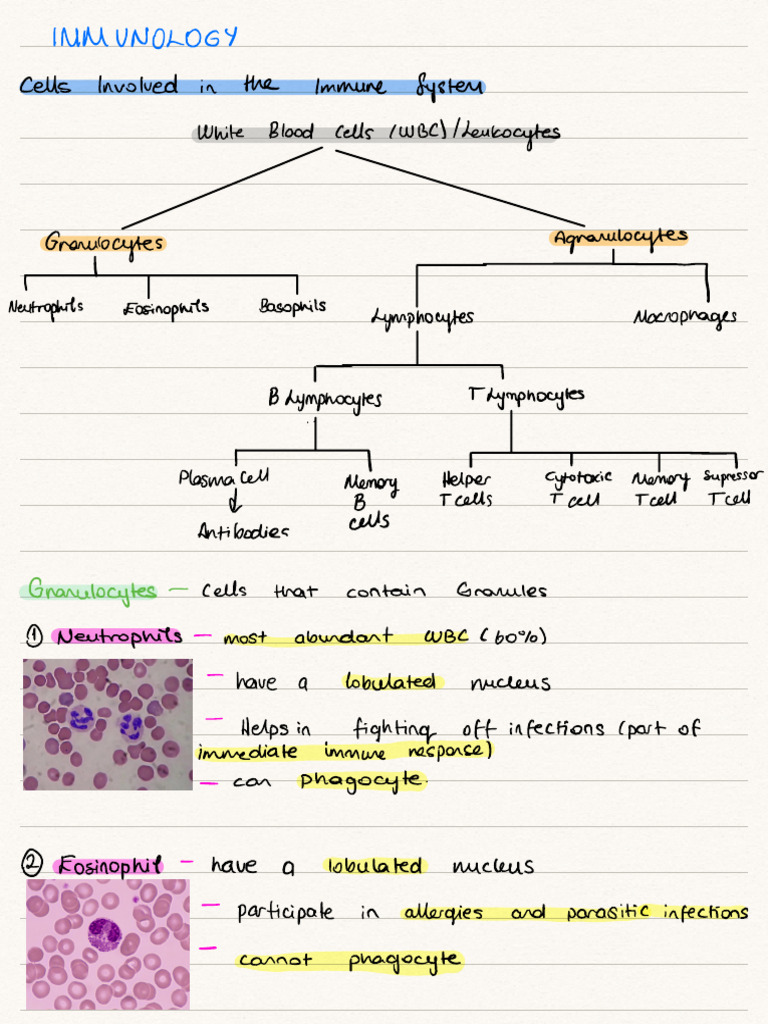 IMMUNOLOGY
Cells Involved in the Immune System
White Blood Cells (WBC)/Leukocytes
Granulocytes
Agranulocytes
Neutrophils
Eosinophils
Basophils
Lymphocytes
Macrophages
B Lymphocytes
T Lymphocytes
Plasma Cell
Memory
B
cells
Helper
T cells
Cytotoxic
T cell
Memory
T cell
Supressor
T cell
Antibodies
Granulocytes — Cells that contain Granules
① Neutrophils — most abundant WBC (60%)
— have a lobulated nucleus
— Helps in fighting off infections (part of
immediate immune response)
— can phagocyte.
② Eosinophil — have a lobulated nucleus
— participate in allergies and parasitic infections
— cannot phagocyte